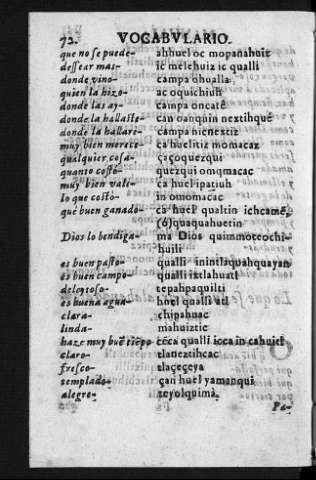 72. VOCABVLARIO.
que no se puede- ahhuel oc mopanahuiz
dessear mas- ic melehuiz ic qualli
donde vino- campa ohualla
quien la hizo- ac oquichiuh
donde las ay- campa oncatê
donde la hallaste- can oanquin nextihquê
donde la hallarè- campa nicnextiz
muy bien merece- ça huelitiz momacaz
qualquier cosa- çaçoquezqui
quanto costò- quezqui omqmacac
muy bien vale- ca huel ipatiuh
lo que costò- in omomacac
què buen ganado- ca huel qualtin ichcamê,
(ó)quaquahuetin
Dios lo bendiga- ma Dios quimmoteochi-
huili
es buen pasto- qualli inintlaquahquayan
es buen campo- qualli ixtlahuatl
deleytoso- tepahpaquilti
es buena agua- huel qualli atl
clara- chipahuac
linda- mahuiztic
haze muy buē tiēpo- cēca qualli icca in cahuitl
claro- tlaneztihcac
fresco- tlaçeçeya
templado- çan huel yamanqui
alegre- teyolquimà
Pa-